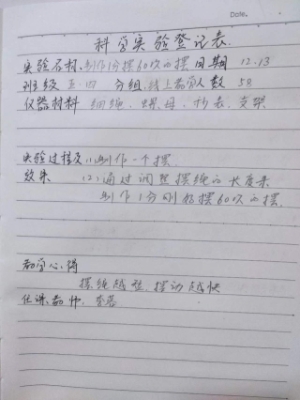 Date.
科学实验登记表
实验名称:制作1分摆60次的摆 日期 12.13
班级 五.四 分组 线上教学 人数 50
仪器材料 细绳、螺母、秒表、支架
实验过程及 (1)制作一个摆
效果 (2)通过调整摆绳的长度来
制作1分刚好摆60次的摆.
教学心得
摆绳越短 摆动越快
任课教师